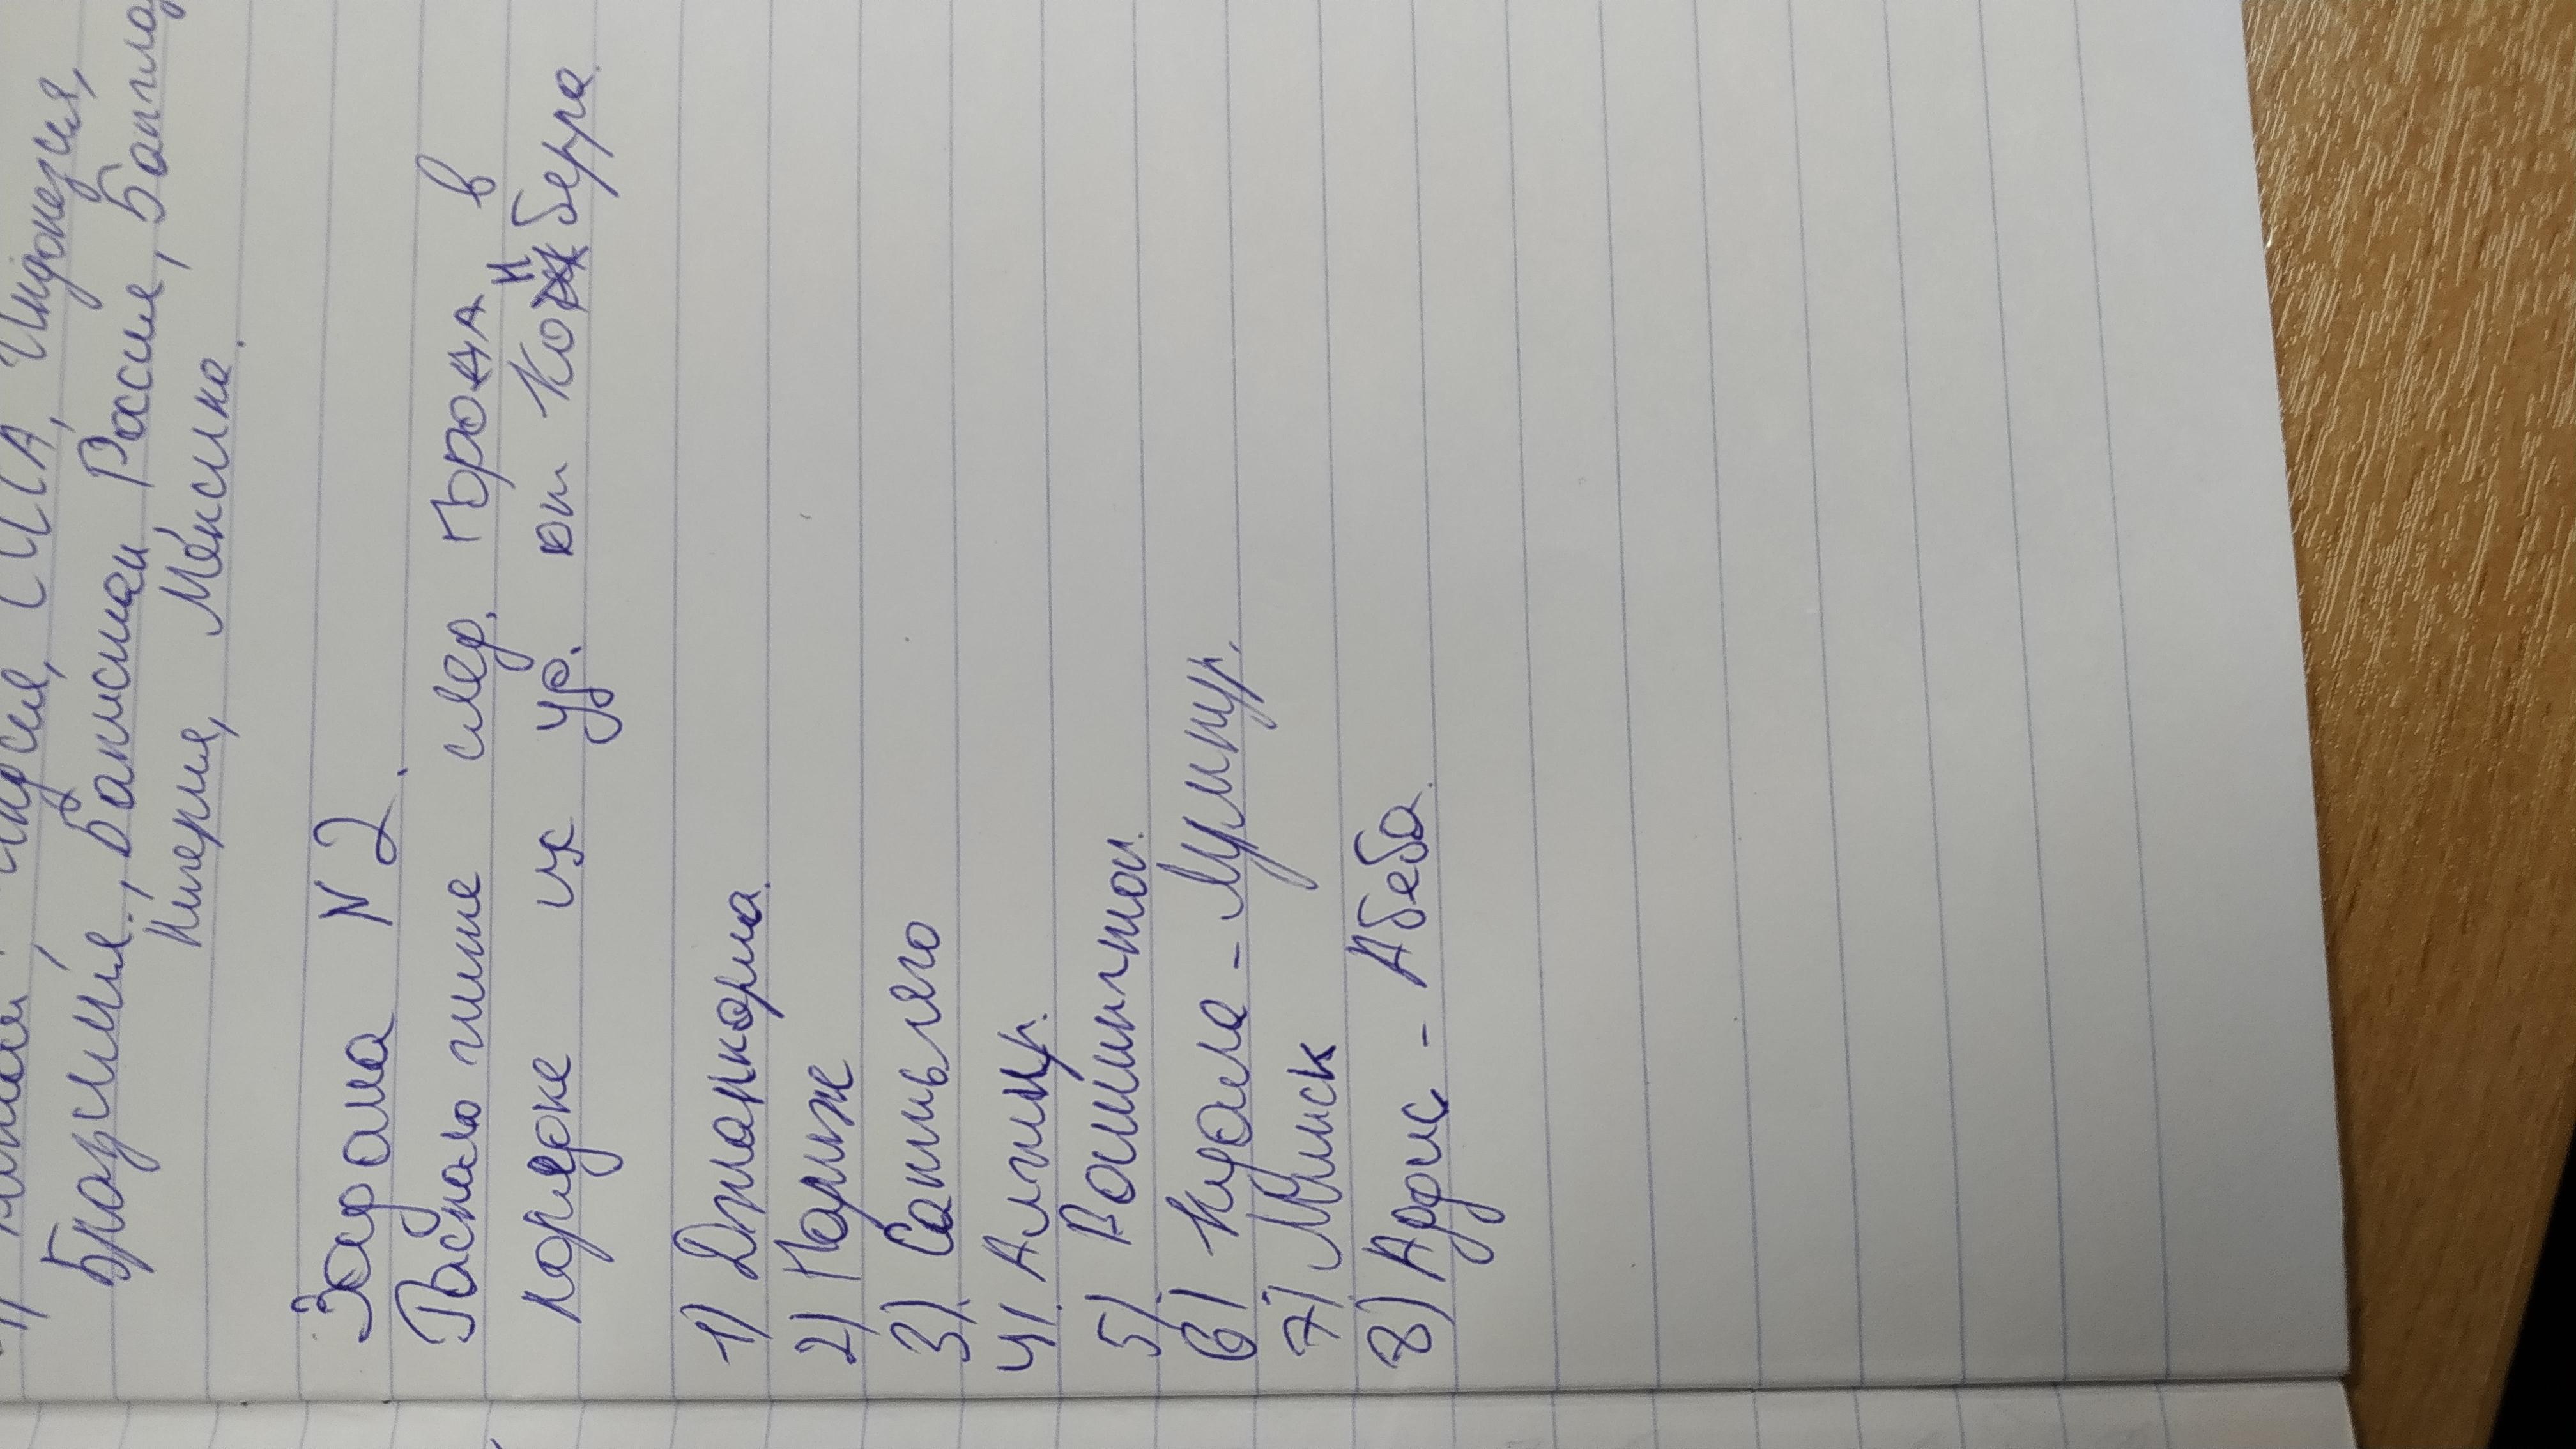 Индия, США, Индонезия,
Бразилия, Пакистан Россия, Бангла
Нигерия, Мексика.
Задача N2.
Расположите след. города в
порядке их уд. от Канберра.
1) Джакарта.
2) Париж
3) Сантьяго
4) Алжир.
5) Вашингтон.
6) Куала-Лумпур.
7) Минск
8) Аддис-Абеба.